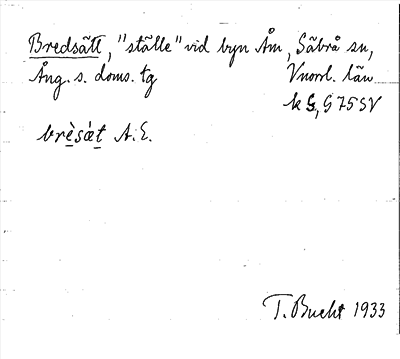 Bredsätt, "ställe" vid byn Åm, Säbrå sn,
Ång. s. doms. tg Vnorrl. län
k G, G 75 SV
brèsǽt A.E.
T. Bucht 1933